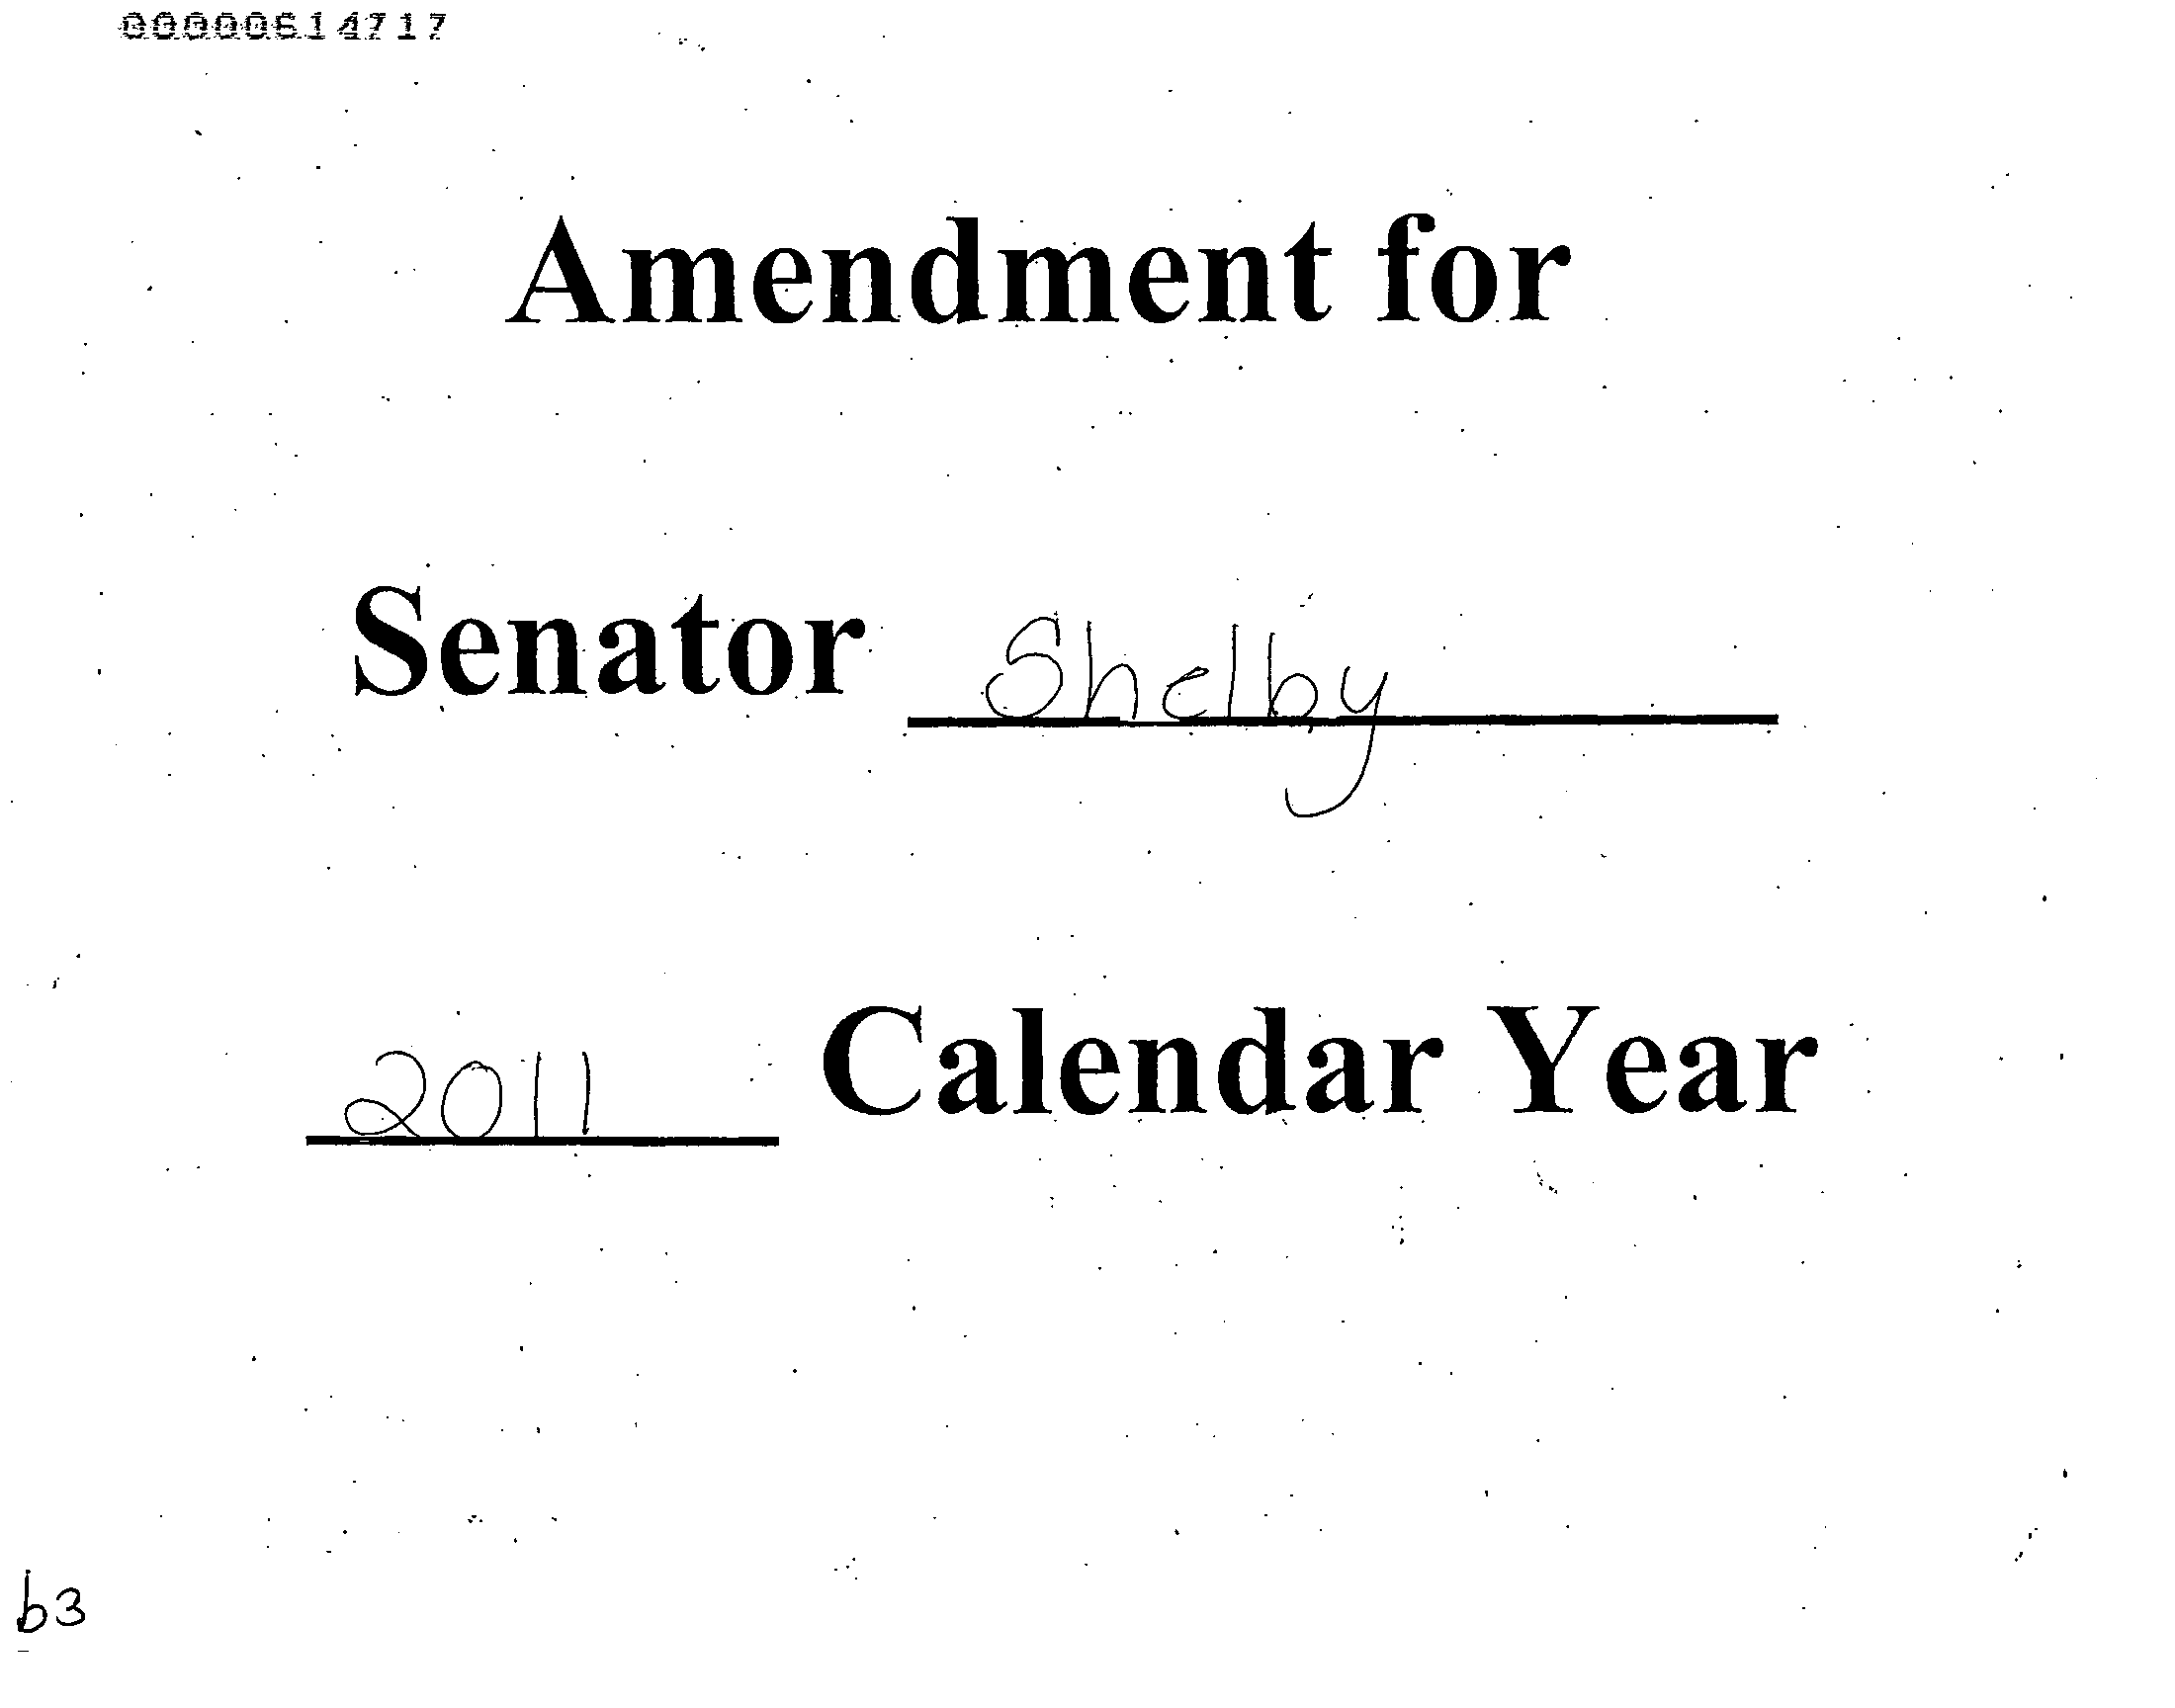 00000614717
Amendment for
Senator Shelby
2011 Calendar Year
b3